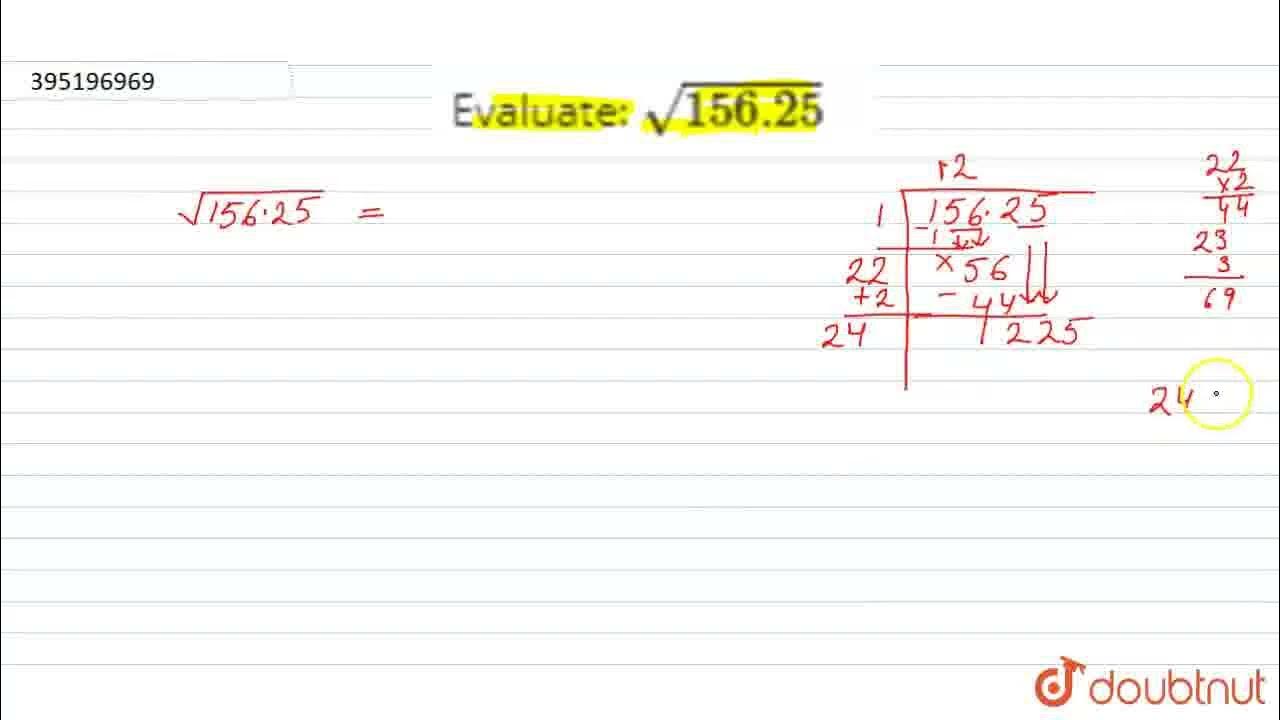 395196969
Evaluate: √156.25
√156.25 =
12
1 156.25
- 1
22 × 56
+2 - 44
24 1225
22
×2
44
23
3
69
24
doubtnut